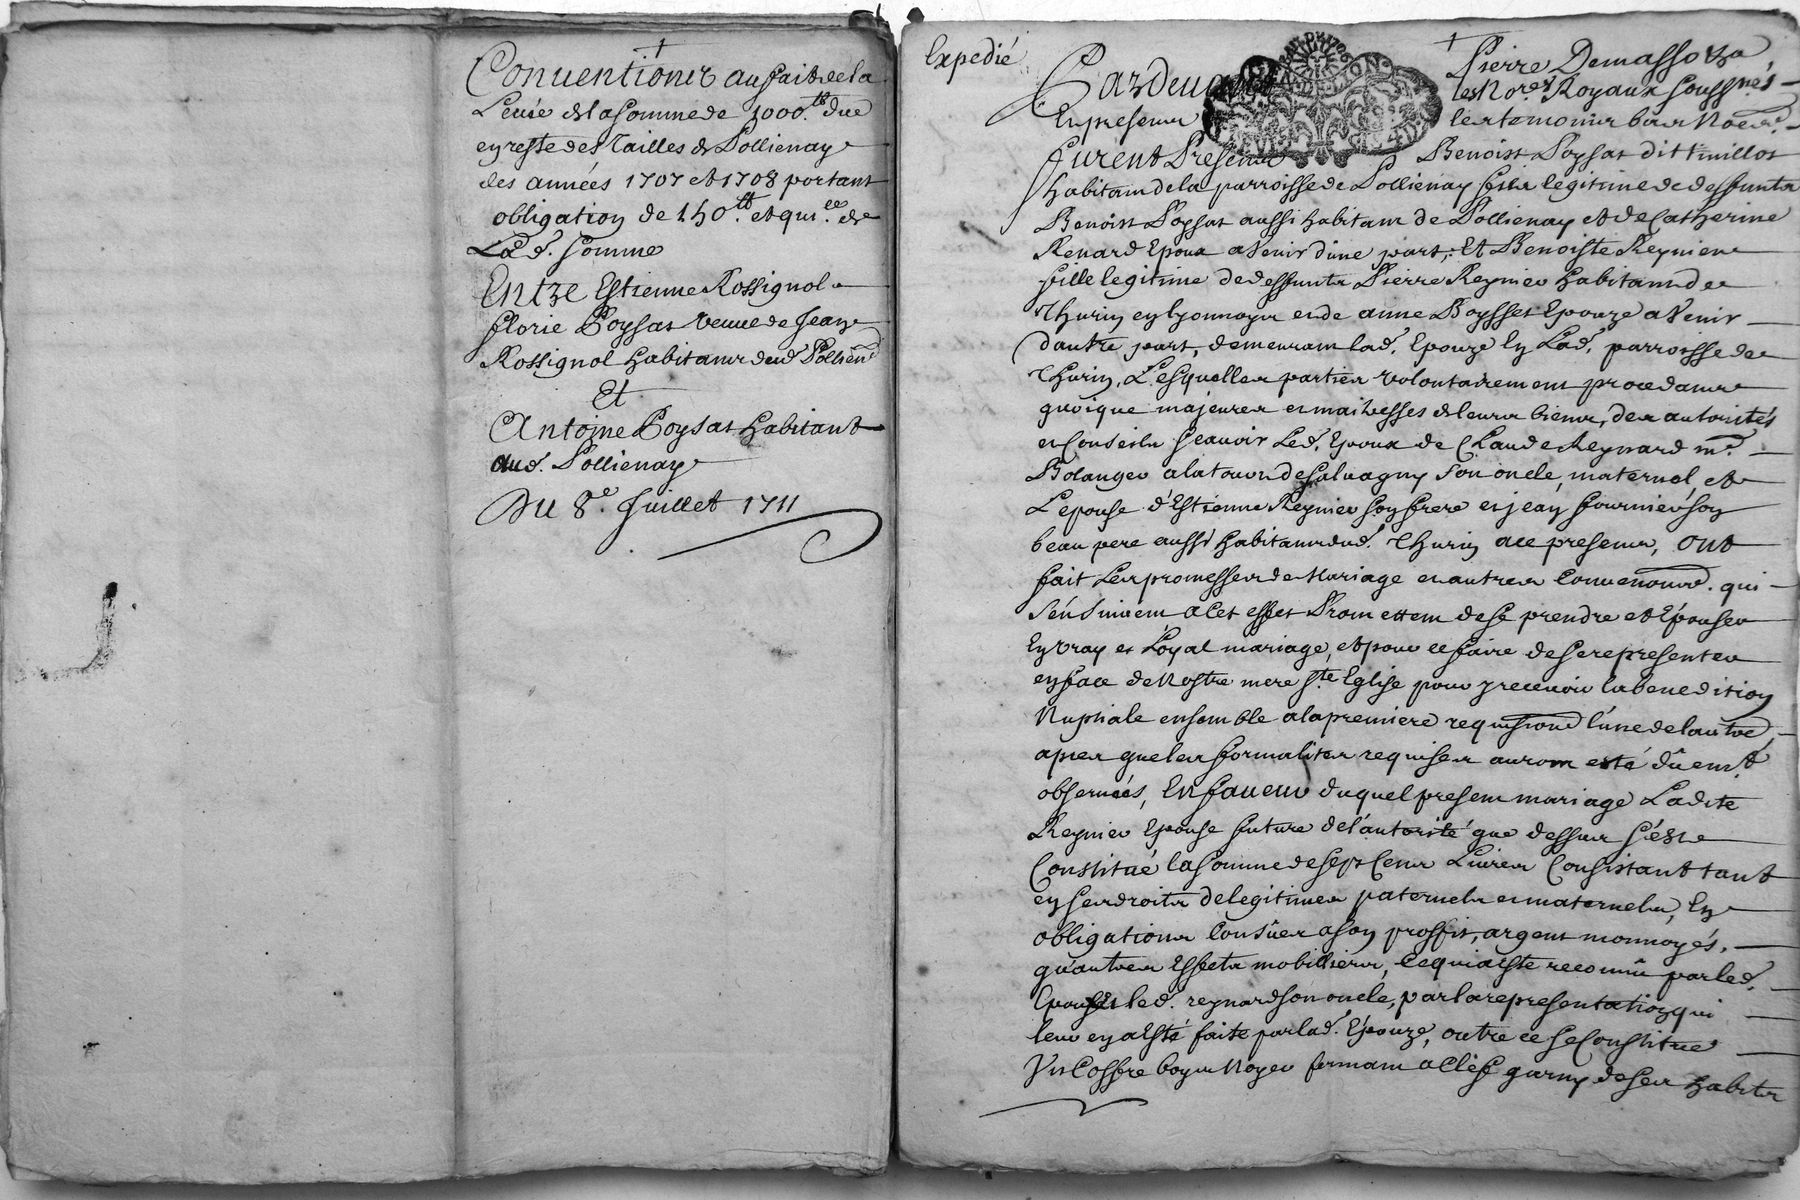 Conuentions au fait de la
Leuée de la somme de 1000.tt due
en reste des Tailles de Pollienay
des années 1707 et 1708 portant
obligation de 150.tt et qui.ce de
Lad. somme
Entre Estienne Rossignol
florie Poysat veuue de Jean
Rossignol habitans dud Pollien.
Et
Antoine Poysat habitant
dud. Pollienay
Du 8.e Juillet 1711
Expedié
Pardeuant Pierre Demassoza
les No.res Royaux soussnés
En presence les temoins bas Nom.
furent Presens Benoist Poysat dit
habitant de la parroisse de Pollienay fils legitime de deffunts
Benoist Poysat aussi habitant de Pollienay et de Catherine
Renard Epoux a Venir d'une part, Et Benoiste Reynier
fille legitime de deffunts Pierre Reynier habitant de
Thurin en lyonnois et de anne Boysset Epouze a Venir
d'autre part, demeurant lad. Epouze En Lad. parroisse de
Thurin, Lesquelles parties volontairement procedants
quoique majeures et maitresses de leurs biens, des autorités
et Conseils scauoir Led. Epoux de Claude Reynard m.e
Bolanger a la tour de Saluagny son oncle, maternel, et
L'epouse d'Estienne Reynier son frere et jean fournier son
beau pere aussi habitans dud. Thurin a ce presens, ont
fait Les promesses de Mariage et autres Conuentions. qui
s'en suiuent, a Cet effet Promettent de se prendre et Epouser
En vray et Loyal mariage, et pour ce faire de se representer
en face de Nostre mere s.te Eglise pour y receuoir la benediction
Nuptiale ensemble a la premiere requisition l'une de l'autre
apres que les formalites requises auront esté dûem.t
obseruées, En faueur duquel present mariage Ladite
Reynier Epouse future de l'autorité que dessus s'est
Constitué la somme de sept Cens Liures Consistant tant
en ses droits de legitimes paternels et maternels, En
obligations Consües a son proffit, argent monnoyés,
qu'autres Effets mobilliers, Ce qui a Esté reconnû par led.
Epoux et led. reynard son oncle, par la representation qui
leur en a Esté faite par lad. Epouze, outre ce se Constitue
Un Coffre boys Noyer fermant a Clef garny de ses habits